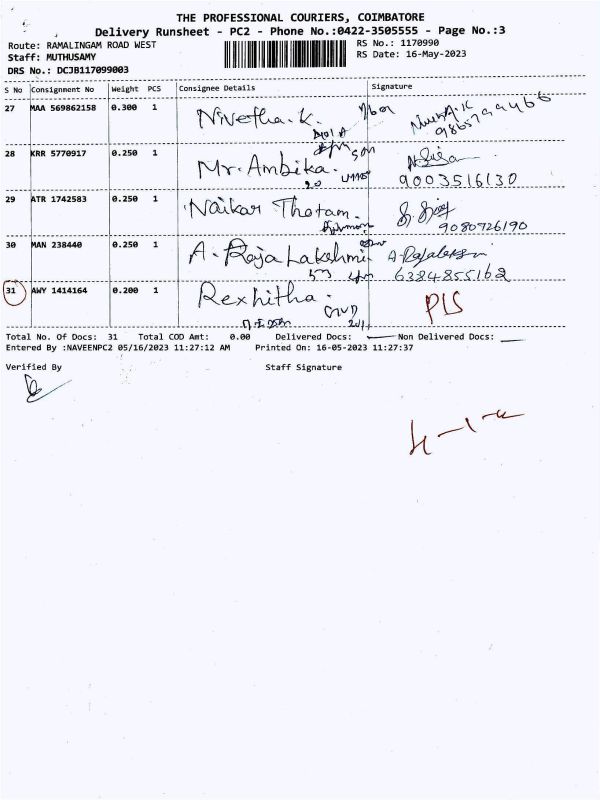 THE PROFESSIONAL COURIERS, COIMBATORE
Delivery Runsheet - PC2 - Phone No.:0422-3505555 - Page No.:3
Route: RAMALINGAM ROAD WEST
RS No.: 1170990
Staff: MUTHUSAMY
RS Date: 16-May-2023
DRS No.: DCJB117099003
S No Consignment No Weight PCS Consignee Details Signature
27 MAA 569862158 0.300 1 Nivetha.K.
28 KRR 5770917 0.250 1 Mr. Ambika.
20
9003516130
29 ATR 1742583 0.250 1 Naikar Thotam.
9080726190
30 MAN 238440 0.250 1 A. Raja Lakshmi
53
6384855162
31 AWY 1414164 0.200 1 Rexhitha.
Total No. Of Docs: 31 Total COD Amt: 0.00 Delivered Docs: Non Delivered Docs:
Entered By :NAVEENPC2 05/16/2023 11:27:12 AM Printed On: 16-05-2023 11:27:37
Verified By Staff Signature